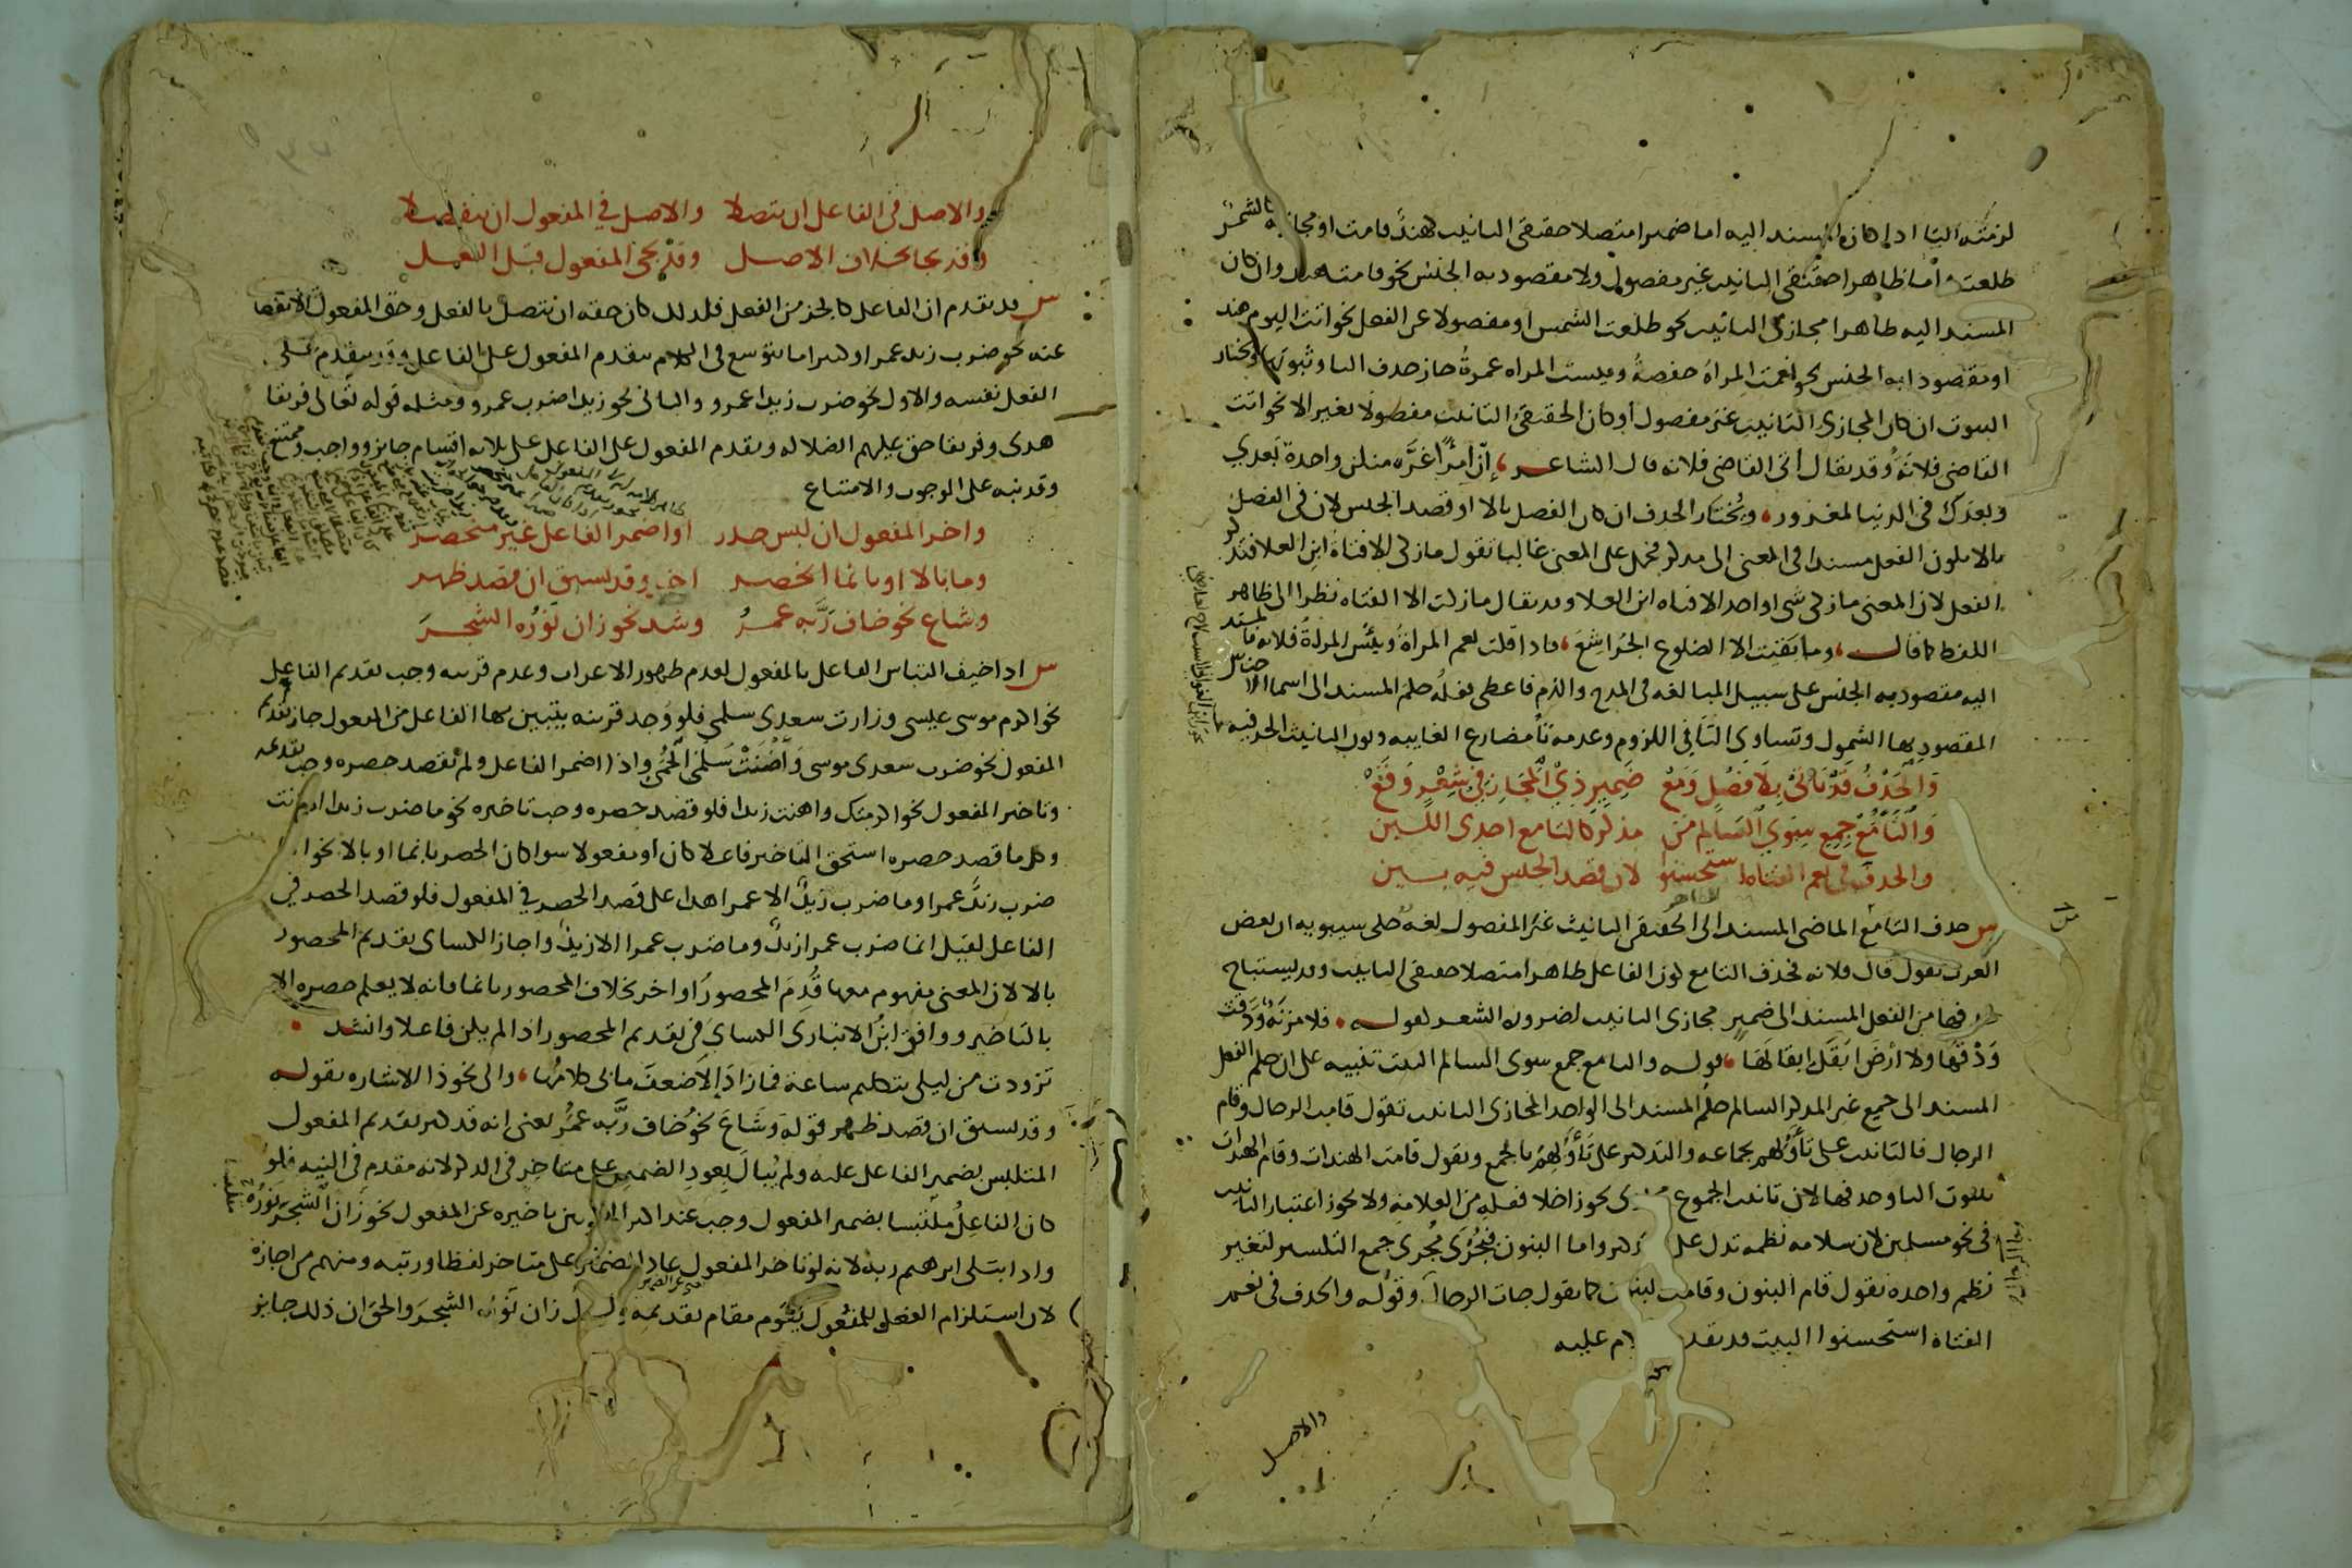 لزمته التا اذا كان المسند اليه اما ضميرا متصلا حقيقي التانيث كهند قامت او مجازيه كالشمس
طلعت واما ظاهرا حقيقي التانيث غير مفصول ولا مقصود به الجنس نحو قامت هند وان كان
المسند اليه ظاهرا مجازي التانيث نحو طلعت الشمس او مفصولا عن الفعل نحو اتت اليوم هند
او مقصودا به الجنس نحو نعمت المراة حفصة وبيست المراه عمرة جاز حذف التا وثبوتها ويختار
الثبوت ان كان المجازي التانيث غير مفصول او كان الحقيقي التانيث مفصولا بغير الا نحو اتت
القاضي فلانة وقد يقال اتى القاضي فلانه قال الشاعر ان امرًا غره منكن واحدة بعدي
وبعدك في الدنيا لمغرور ويختار الحذف ان كان الفصل بالا او قصد الجنس لان في الفصل
بالا يكون الفعل مسندا في المعنى الى مذكر فحمل على المعنى غالبا تقول ما زكى الا فتاة ابن العلا فتذكر
الفعل لان المعنى ما زكى شي او احد الا فتاه ابن العلا وقد يقال ما زكت الا الفتاه نظرا الى ظاهر
اللفظ كما قال وما بقيت الا الضلوع الجراشع فاذا قلت نعم المراة وبئس المراة فلانه فالمسند
اليه مقصود به الجنس على سبيل المبالغه في المدح والذم فاعطى فعله حكم المسند الى اسما الاجناس
المقصود بها الشمول وتساوي التا في اللزوم وعدمه تا مضارع الغايبه ونون التانيث الحرفيه
والحذف قد ياتي بلا فصل ومع ضمير ذي المجاز في شعر وقع
والتا مع جمع سوى السالم من مذكر كالتا مع احدى اللبن
والحذف في نعم الفتاة استحسنوا لان قصد الجنس فيه بين
س حذف التا مع الماضي المسند الى الحقيقي التانيث غير المفصول لغه حكى سيبويه ان بعض
العرب يقول قال فلانه فحذف التا مع كون الفاعل ظاهرا متصلا حقيقي التانيث وقد يستباح
حذفها من الفعل المسند الى ضمير مجازي التانيث لضرورة الشعر كقوله فلا مزنة ودقت
ودقها ولا ارض ابقل ابقالها قوله والتا مع جمع سوى السالم البيت تنبيه على ان حكم الفعل
المسند الى جمع غير المذكر السالم حكم المسند الى الواحد المجازي التانيث تقول قامت الرجال وقام
الرجال فالتانيث على تاولهم بجماعه والتذكير على تاولهم بالجمع وتقول قامت الهندات وقام الهندات
بثبوت التا وحذفها لان تانيث الجموع يجوز اخلا فعله من العلامة ولا يجوز اعتبار التانيث
في نحو مسلمين لان سلامه نظمه تدل على واما البنون فيجرى مجرى جمع التكسير لتغير
نظم واحده تقول قام البنون وقامت البنون كما تقول جات الرجال وقوله والحذف في نعم
الفتاة استحسنوا البيت قد تقدم عليه
والاصل
والاصل في الفاعل ان يتصلا والاصل في المفعول ان ينفصلا
وقد يجا بخلاف الاصل وقد يجي المفعول قبل الفعل
س قد تقدم ان الفاعل كالجز من الفعل فلذلك كان حقه ان يتصل بالفعل وحق المفعول الانفصال
عنه نحو ضرب زيد عمرا وكثيرا ما يتوسع في الكلام بتقدم المفعول على الفاعل وقد يتقدم على
الفعل نفسه والاول نحو ضرب زيدا عمرو والثاني نحو زيدا ضرب عمرو ومثله قوله تعالى فريقا
هدى وفريقا حق عليهم الضلاله وتقدم المفعول على الفاعل على ثلاثه اقسام جايز وواجب وممتنع
وقد نبه على الوجوب والامتناع
واخر المفعول ان لبس حذر او اضمر الفاعل غير منحصر
وما بالا او بانما انحصر اخر وقد يسبق ان قصد ظهر
وشاع نحو خاف ربه عمر وشذ نحو زان نوره الشجر
س اذا خيف التباس الفاعل بالمفعول لعدم ظهور الاعراب وعدم قرينه وجب تقديم الفاعل
نحو اكرم موسى عيسى وزارت سعدى سلمى فلو وجد قرينه يتبين بها الفاعل من المفعول جاز تقديم
المفعول نحو ضرب سعدى موسى واضنت سلمى الحمى واذا اضمر الفاعل ولم يقصد حصره وجب تقديمه
وتاخير المفعول نحو اكرمتك واهنت زيدا فلو قصد حصره وجب تاخيره نحو ما ضرب زيدا الا انت
وكل ما قصد حصره استحق التاخير فاعلا كان او مفعولا سوا كان الحصر بانما او بالا نحو انما
ضرب زيد عمرا وما ضرب زيد الا عمرا هذا على قصد الحصر في المفعول فلو قصد الحصر في
الفاعل لقيل انما ضرب عمرا زيد وما ضرب عمرا الا زيد واجاز الكساي تقديم المحصور
بالا لان المعنى مفهوم معها قدم المحصور او اخر بخلاف المحصور بانما فانه لا يعلم حصره الا
بالتاخير ووافق ابن الانباري الكساي في تقديم المحصور اذا لم يكن فاعلا وانشد
تزودت من ليلى بتكليم ساعة فما زاد الا ضعف ما بي كلامها والى نحو ذا الاشاره بقوله
وقد يسبق ان قصد ظهر قوله وشاع نحو خاف ربه عمر يعني انه قد كثر تقديم المفعول
المتلبس بضمير الفاعل عليه ولم يبال بعود الضمير على متاخر في الذكر لانه متقدم في النيه فلو
كان الفاعل ملتبسا بضمير المفعول وجب عند اكثر البصريين تاخيره عن المفعول نحو زان الشجر نوره
واذ ابتلى ابرهيم ربه لانه لو تاخر المفعول عاد الضمير على متاخر لفظا ورتبه ومنهم من اجازه
لان استلزام الفعل للمفعول يقوم مقام تقديمه زان نوره الشجر والحق ان ذلك جايز